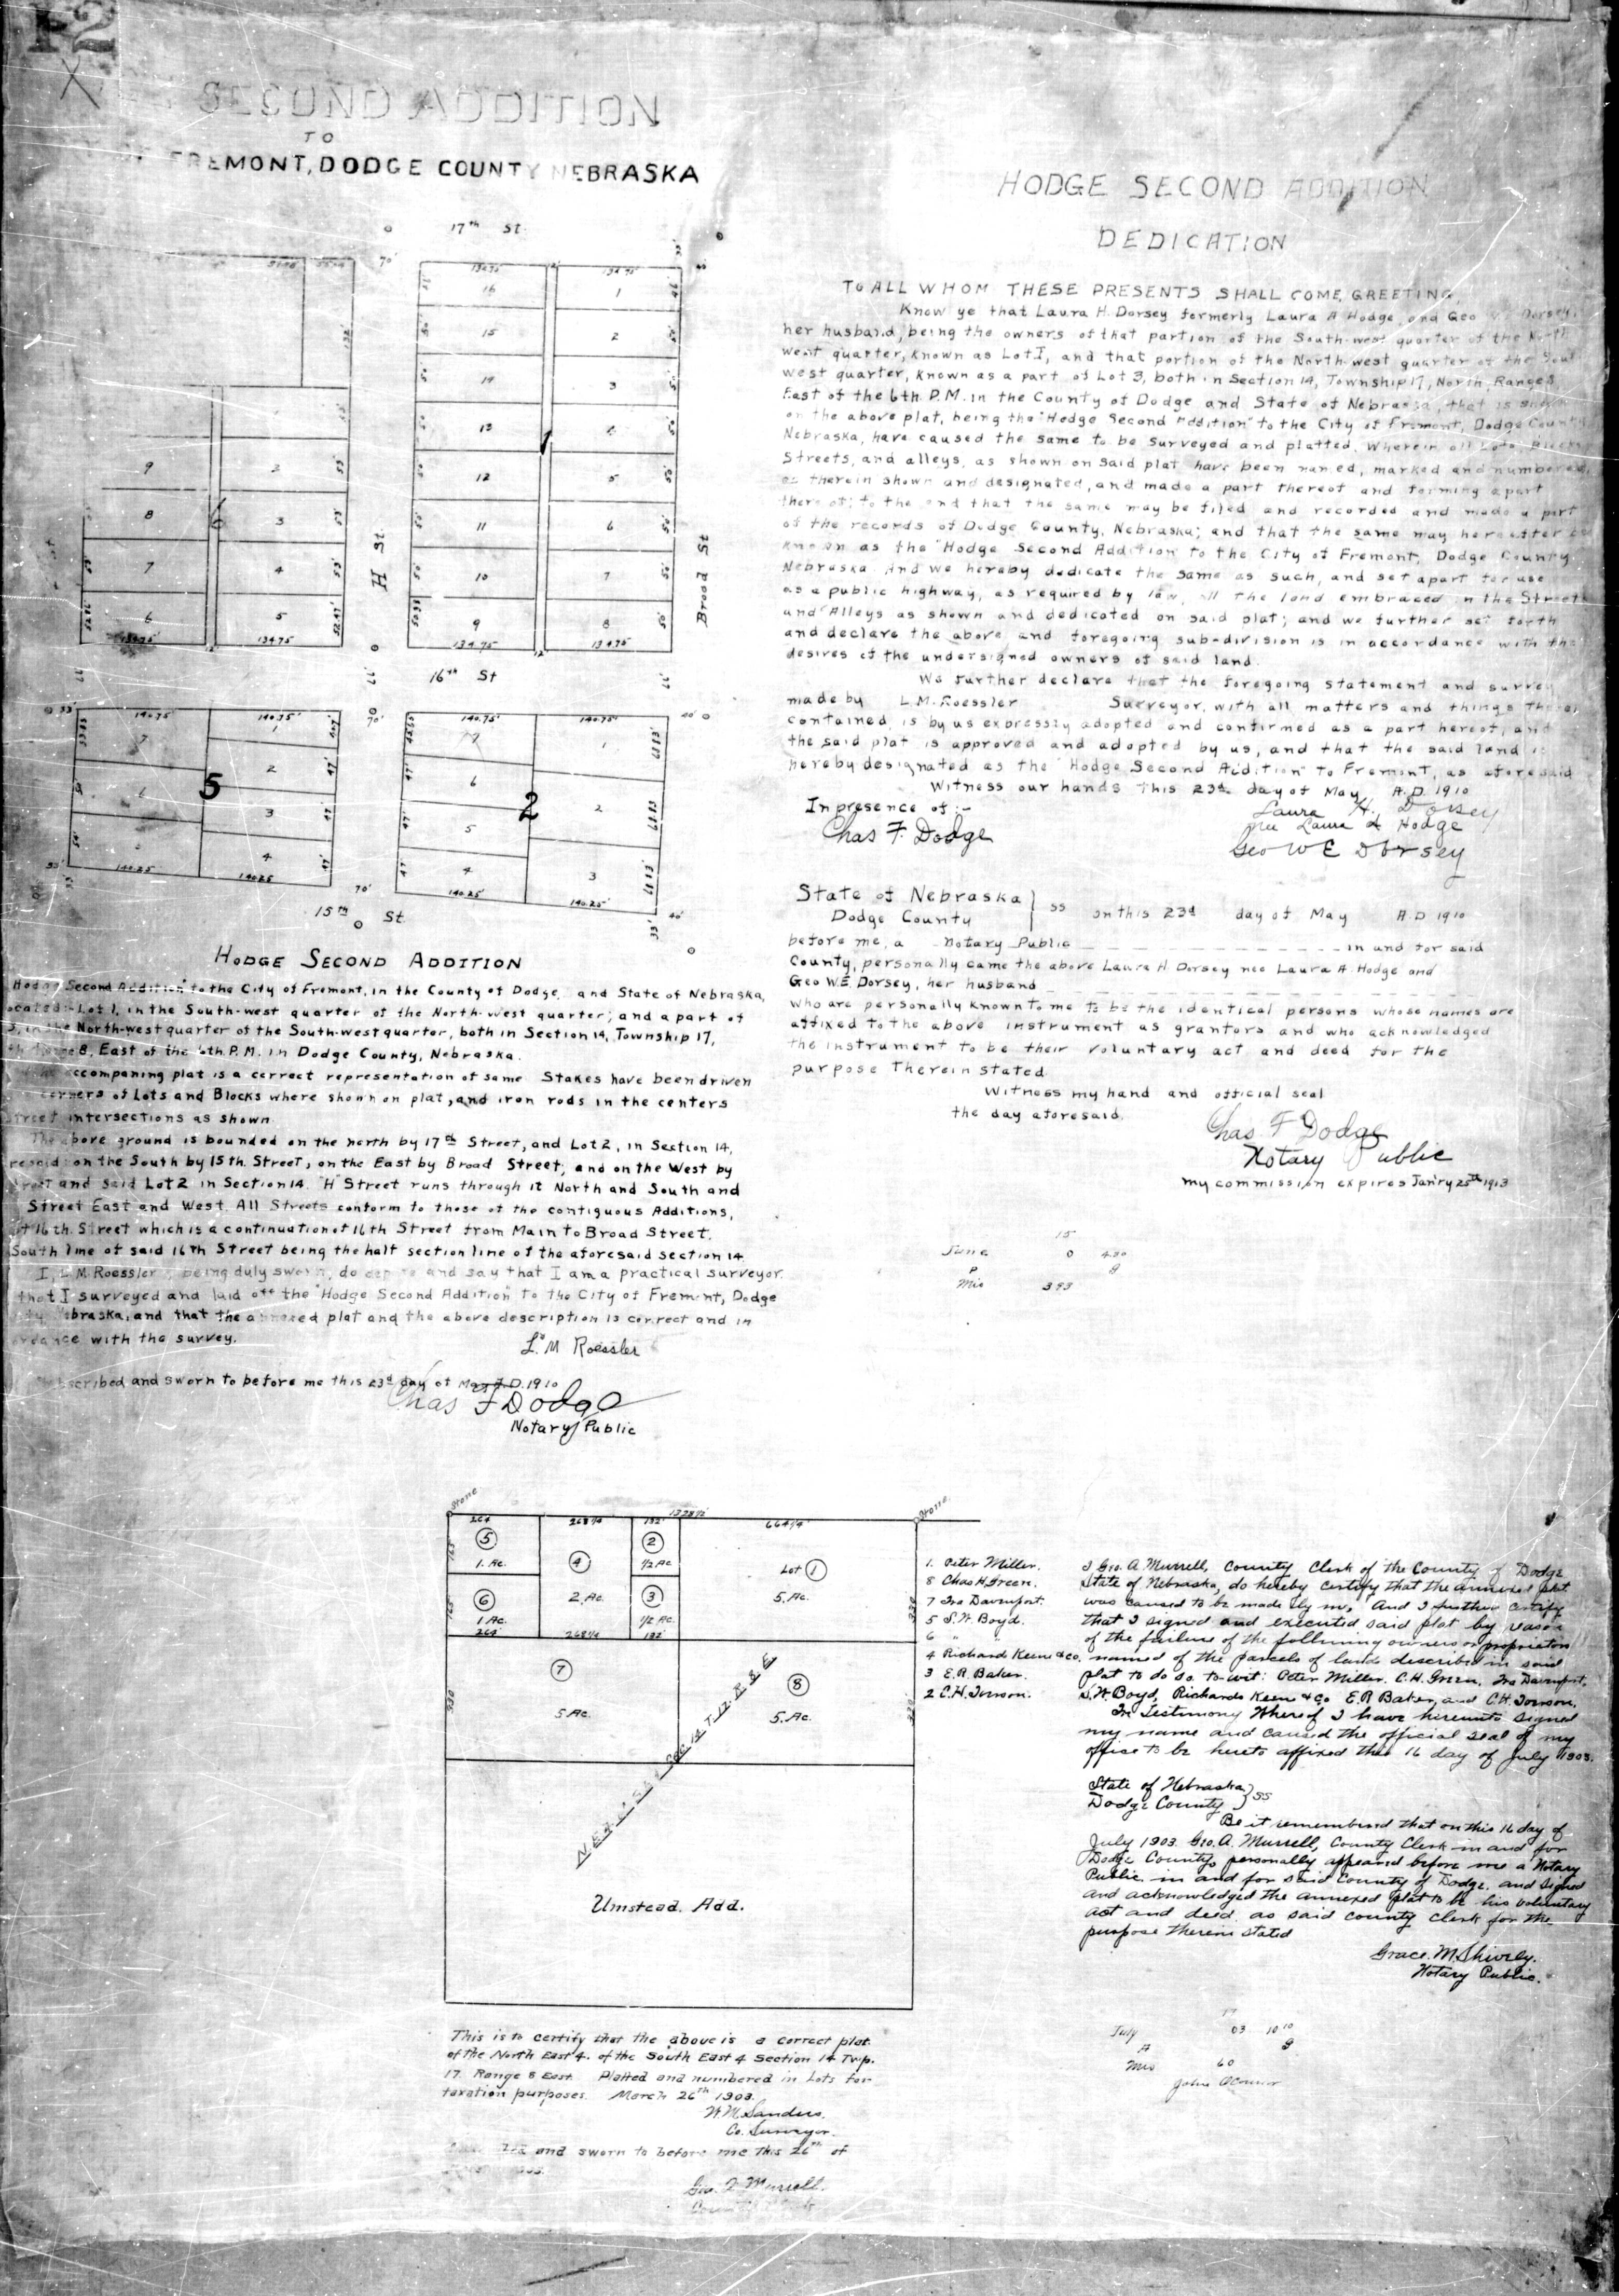 12
SECOND ADDITION
TO
FREMONT, DODGE COUNTY NEBRASKA
17th St
70'
134.75'
134.75'
16
1
15
2
14
3
13
4
12
5
11
6
10
7
9
8
134.75
134.75
1
H St.
Broad St
9
2
8
3
7
4
6
5
134.75
134.75
6
16th St
140.75'
140.75'
70'
140.75'
140.75'
40'
7
1
2
6
3
4
140.25
140.25
5
7
1
6
2
5
4
3
140.25'
140.25'
2
15th St
70'
40'
33'
HODGE SECOND ADDITION
Hodge Second Addition" to the City of Fremont, in the County of Dodge, and State of Nebraska,
Lot 1, in the South-west quarter of the North-west quarter; and a part of
3, in the North-west quarter of the South-west quarter, both in Section 14, Township 17,
8, East of the 6th P.M. in Dodge County, Nebraska.
accompaning plat is a correct representation of same Stakes have been driven
corners of Lots and Blocks where shown on plat, and iron rods in the centers
Street intersections as shown
The above ground is bounded on the north by 17th Street, and Lot 2, in Section 14,
on the South by 15th. Street, on the East by Broad Street, and on the West by
and said Lot 2 in Section 14. "H" Street runs through it North and South and
Street East and West. All Streets conform to those of the contiguous Additions,
16th. Street which is a continuation of 16th Street from Main to Broad Street.
South line of said 16th Street being the half section line of the aforesaid section 14
I, L.M. Roessler, being duly sworn, do and say that I am a practical surveyor
that I surveyed and laid off the "Hodge Second Addition" to the City of Fremont, Dodge
Nebraska, and that the annexed plat and the above description is correct and in
with the survey.
L. M Roessler
Subscribed and sworn to before me this 23d day of May A.D. 1910
Chas F Dodge
Notary Public
HODGE SECOND ADDITION
DEDICATION
TO ALL WHOM THESE PRESENTS SHALL COME, GREETING,
Know ye that Laura H. Dorsey formerly Laura A Hodge, and Geo W.E. Dorsey,
her husband, being the owners of that partion of the South-west quarter of the North
west quarter, known as Lot 1, and that portion of the North-west quarter of the South
west quarter, known as a part of Lot 3, both in Section 14, Township 17, North Range 8,
East of the 6th. P.M. in the County of Dodge and State of Nebraska, that is shown
on the above plat, being the "Hodge Second Addition" to the City of Fremont, Dodge County
Nebraska, have caused the same to be Surveyed and platted. Wherein all Lots, Blocks
Streets, and alleys, as shown on said plat have been named, marked and numbered,
as therein shown and designated, and made a part thereof and forming a part
thereof; to the end that the same may be filed and recorded and made a part
of the records of Dodge County, Nebraska; and that the same may hereafter be
known as the "Hodge Second Addition" to the City of Fremont, Dodge County
Nebraska. And we hereby dedicate the same as such, and set apart for use
as a public highway, as required by law, all the land embraced in the Streets
and Alleys as shown and dedicated on said plat; and we further set forth
and declare the above and foregoing sub-division is in accordance with the
desires of the undersigned owners of said land.
We further declare that the foregoing statement and survey
made by L.M. Roessler Surveyor, with all matters and things therein
contained, is by us expressly adopted and confirmed as a part hereof, and
the said plat is approved and adopted by us, and that the said land is
hereby designated as the "Hodge Second Addition" to Fremont, as aforesaid
Witness our hands this 23d day of May A.D. 1910
In presence of :-
Chas F. Dodge
Laura H. Dorsey
nee Laura A Hodge
Geo W E Dorsey
State of Nebraska
Dodge County } ss on this 23d day of May A.D 1910
before me, a Notary Public in and for said
County, personally came the above Laura H Dorsey nee Laura A. Hodge and
Geo W.E. Dorsey, her husband
who are personally known to me to be the identical persons whose names are
affixed to the above instrument as grantors and who acknowledged
the instrument to be their voluntary act and deed for the
purpose therein stated
Witness my hand and official seal
the day aforesaid.
Chas. F Dodge
Notary Public
my commission expires Jan'ry 25th 1913
15
June 0 4.30
P 9
Mis 393
Stone
Stone
264
268 1/4
132'
1328 1/2
664 1/4
5
1. Ac.
4
2. Ac.
2
1/2 Ac.
Lot 1
5. Ac.
6
1 Ac.
3
1/2 Ac.
268 1/4
132'
7
5 Ac.
8
5. Ac.
Umstead. Add.
1. Peter Miller.
8 Chas H. Green.
7 Ira Davenport.
5 S.W. Boyd.
6 "
4 Richard Keene & co.
3 E.R. Baker.
2 C.H. Towson.
I Geo. A Murrell, County Clerk of the County of Dodge
State of Nebraska, do hereby certify that the annexed plat
was caused to be made by me, And I further certify
that I signed and executed said plat by reason
of the failure of the following owners or proprietors
named of the parcels of lands described in said
plat to do so. to wit: Peter Miller. C.H. Green, Ira Davenport,
S.W. Boyd, Richards Keen & Co E.R Baker, and C.H. Towson.
In Testimony Whereof I have hereunto signed
my name and caused the official seal of my
office to be hereto affixed this 16 day of July 1903.
State of Nebraska
Dodge County } SS
Be it remembered that on this 16 day of
July 1903. Geo. A. Murrell, County Clerk in and for
Dodge County, personally appeared before me a Notary
Public. in and for said County of Dodge. and signed
and acknowledged the annexed plat to be his voluntary
act and deed. as said county clerk for the
purpose therein stated
Grace. M. Shively.
Notary Public.
17
July 03 10 10
A 9
Mis 60
John O'Connor
This is to certify that the above is a correct plat
of the North East 4. of the South East 4 Section 14 Twp.
17. Range 8 East. Platted and numbered in Lots for
taxation purposes. March 26th 1903.
W.M. Sanders.
Co. Surveyor.
and sworn to before me this 26th of
Geo. A Murrell.